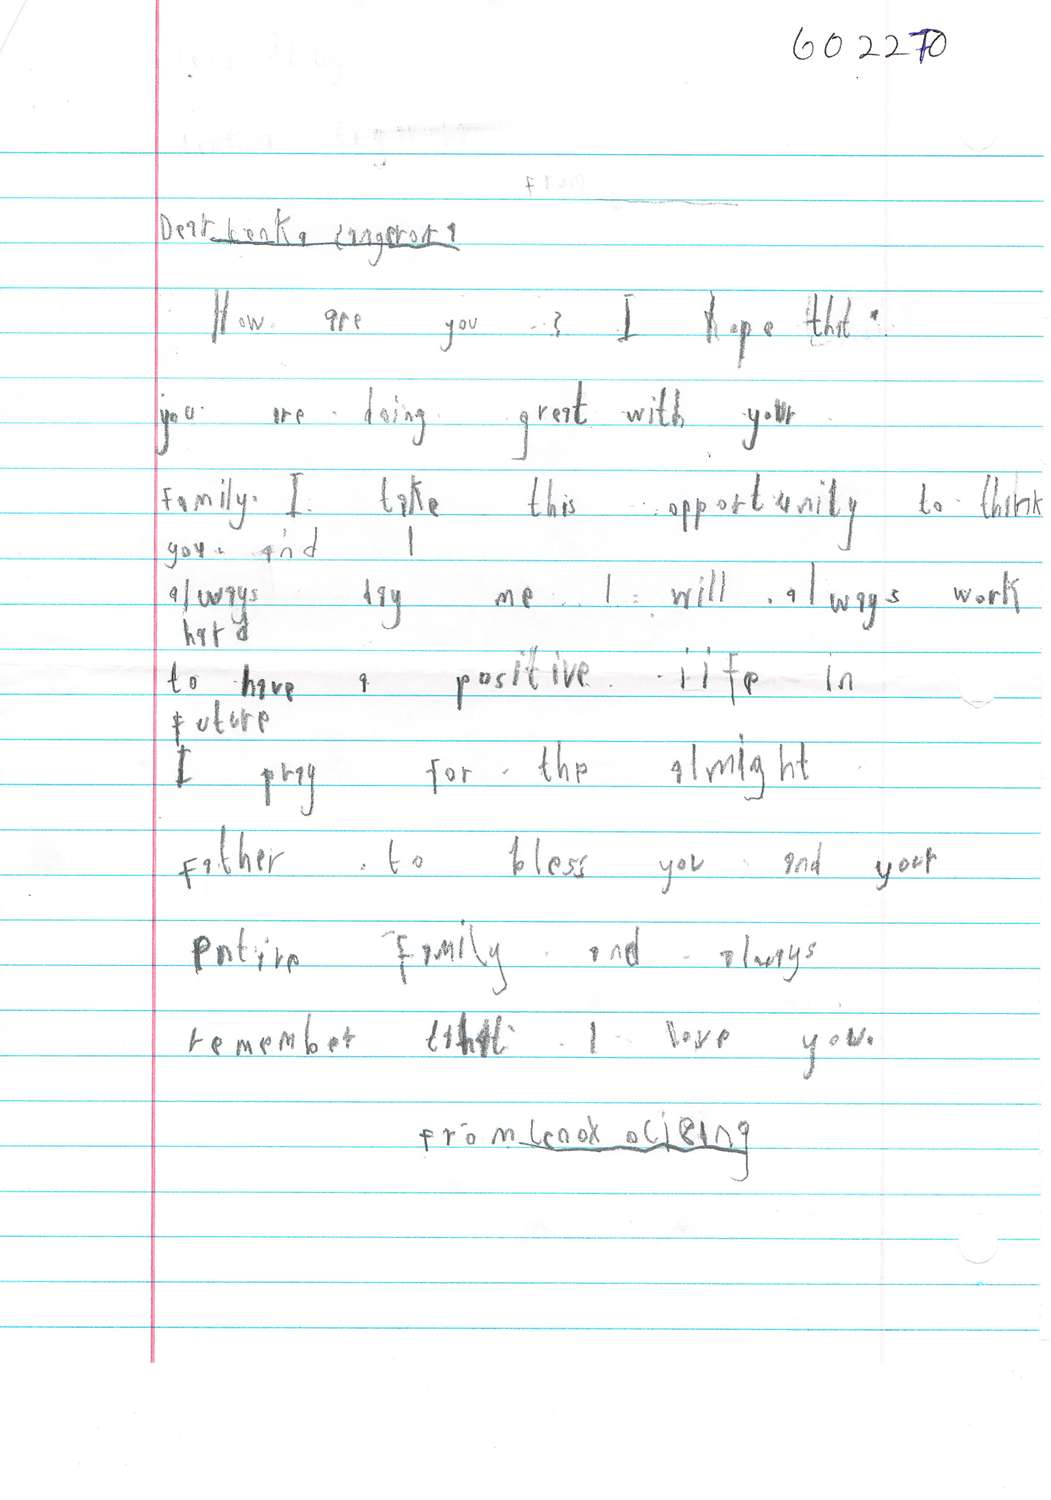 602270
Dear
How are you ? I hope that
you are doing great with your
Family. I take this opportunity to thank
you and I
always day me I will always work
hard
to have a positive life in
future
I pray for the almight
Father to bless you and your
entire family and always
remember that I love you.
From